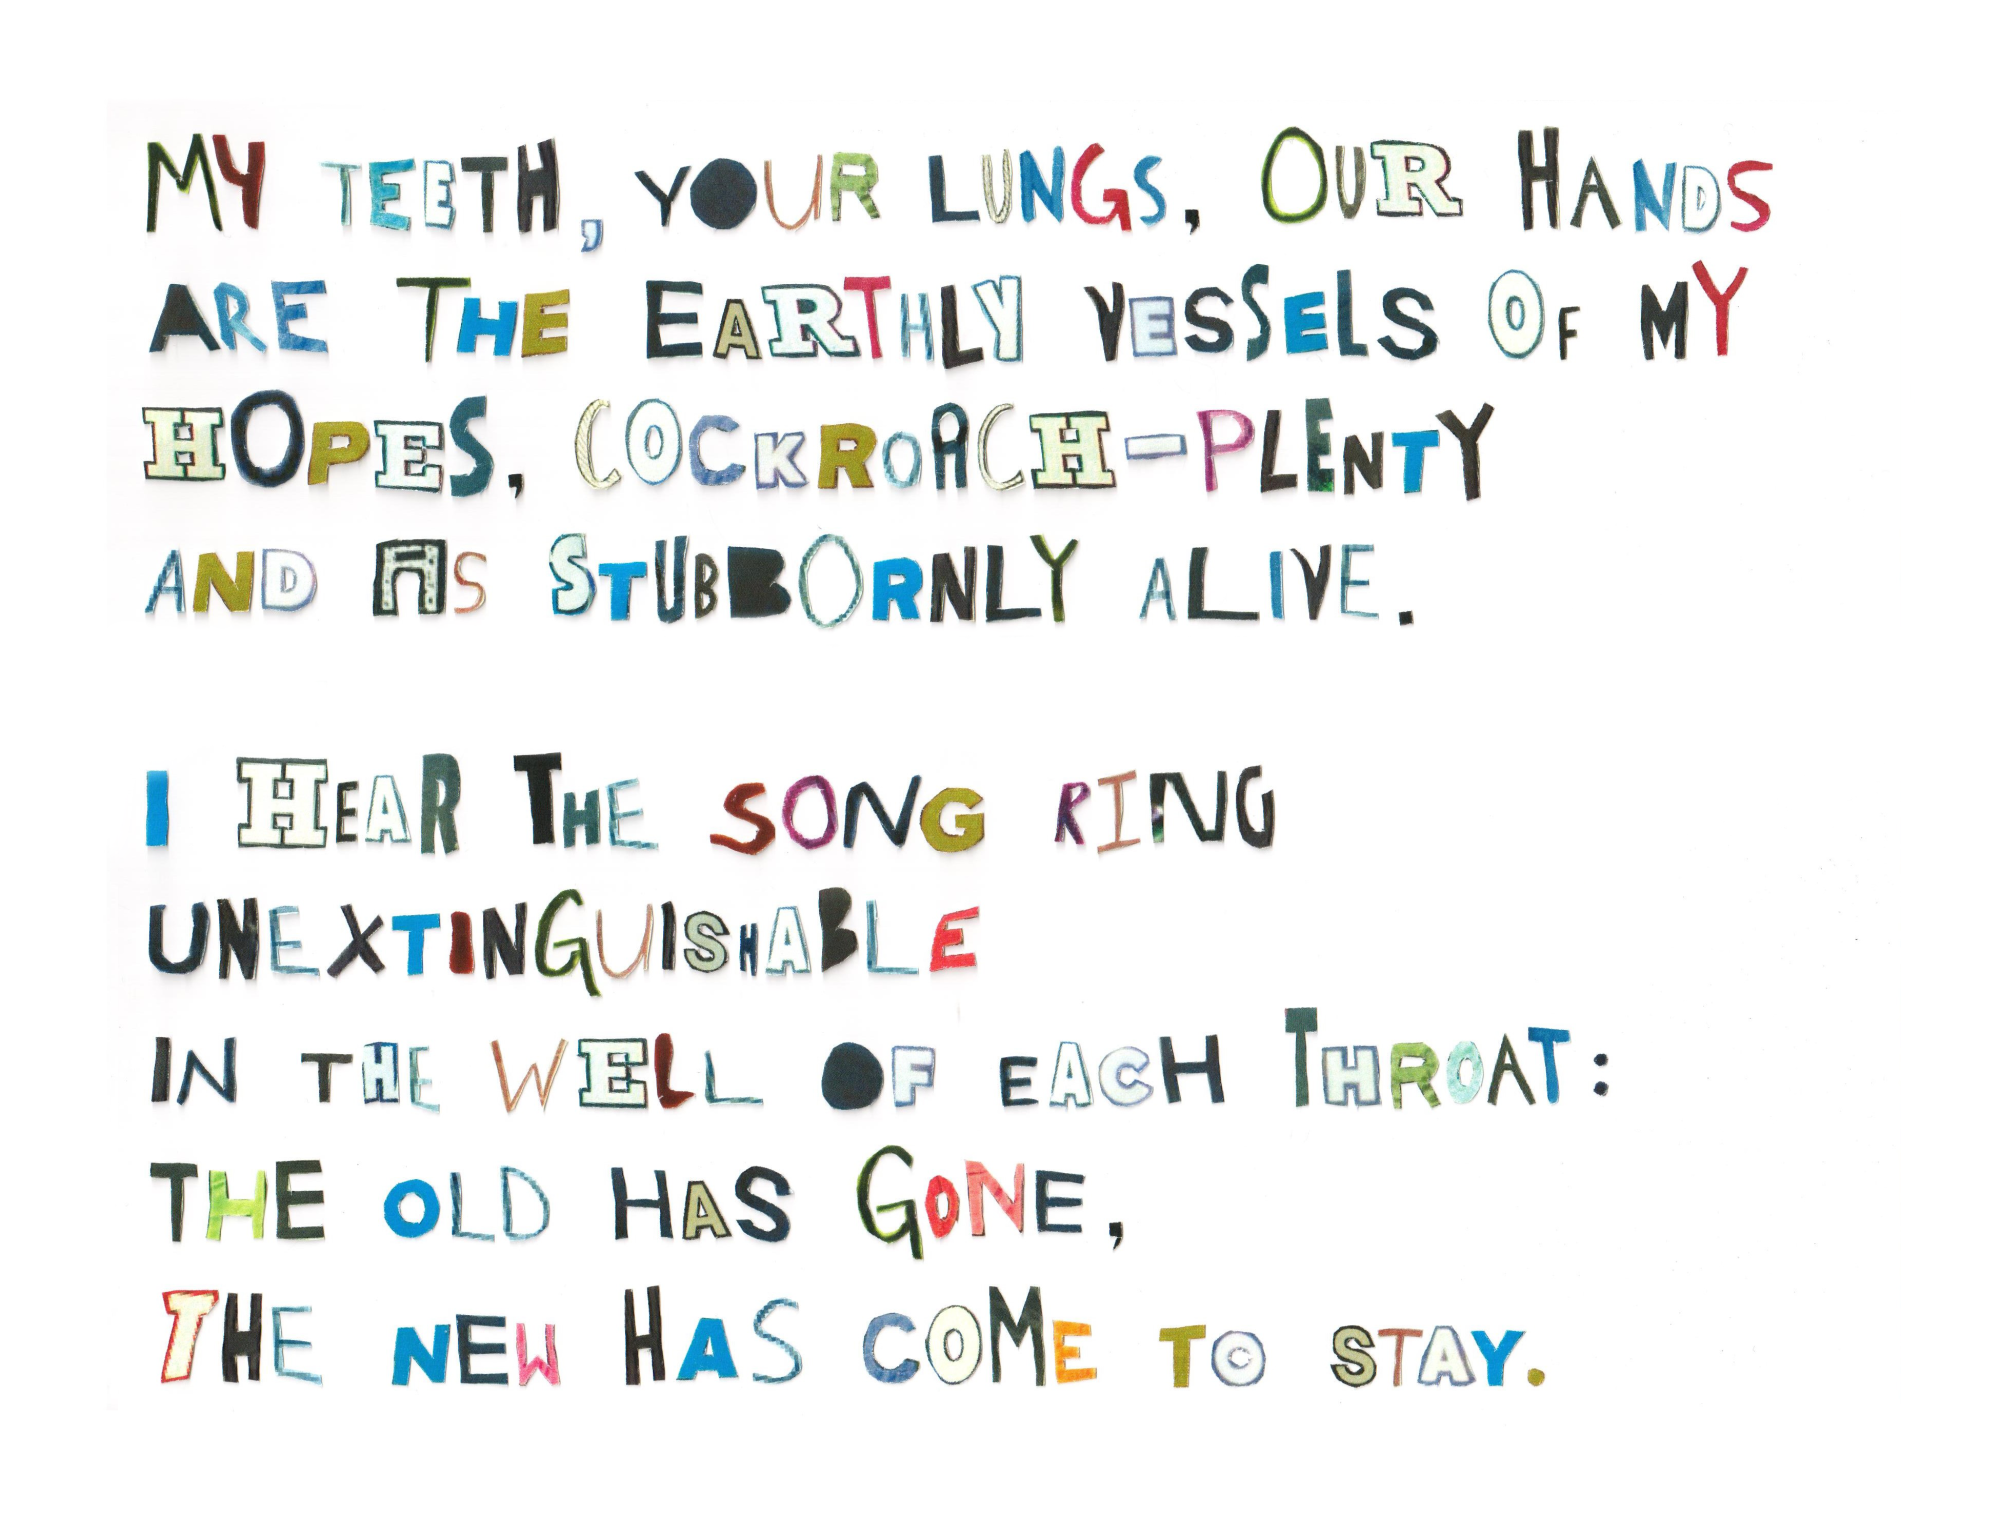 MY TEETH, YOUR LUNGS, OUR HANDS
ARE THE EARTHLY VESSELS OF MY
HOPES, COCKROACH-PLENTY
AND AS STUBBORNLY ALIVE.
I HEAR THE SONG RING
UNEXTINGUISHABLE
IN THE WELL OF EACH THROAT:
THE OLD HAS GONE,
THE NEW HAS COME TO STAY.